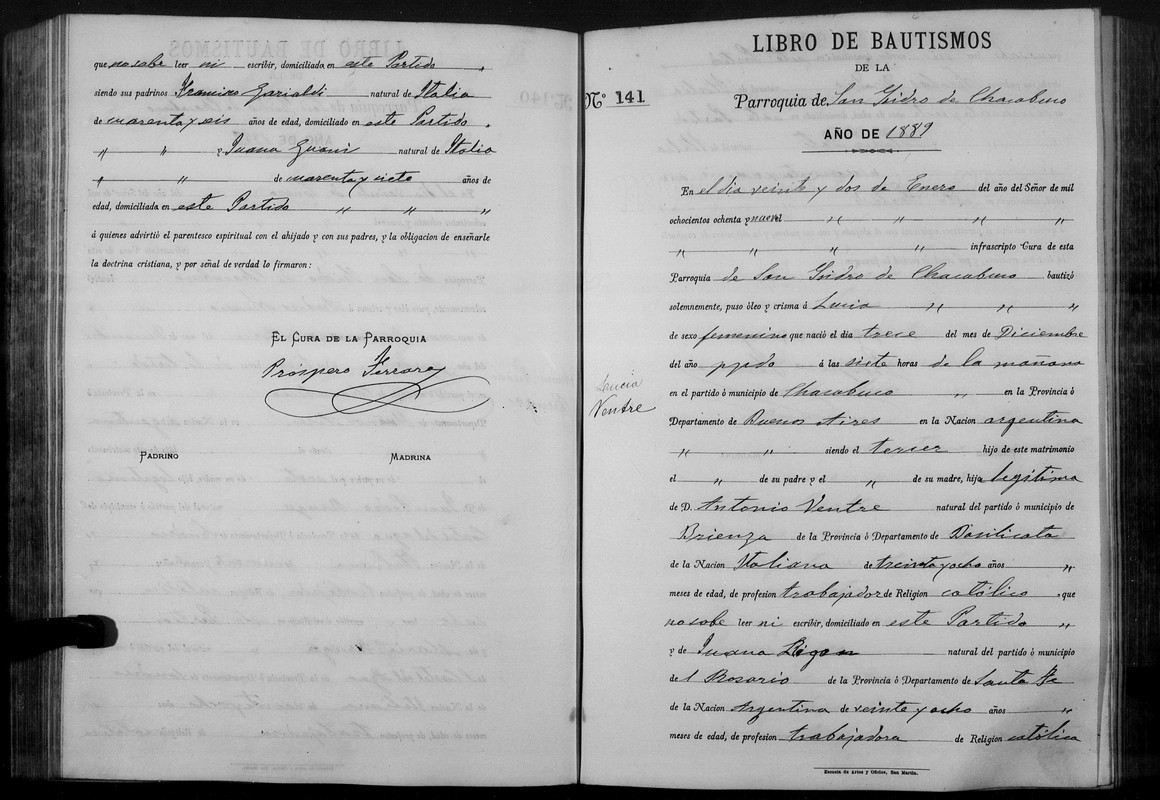 que no sabe leer ni escribir, domiciliado en este Partido
siendo sus padrinos Garialdi natural de Italia
de cuarenta y seis años de edad, domiciliado en este Partido.
" " y Juana natural de Italia
" " de cuarenta y siete años de
edad, domiciliada en este Partido " " "
á quienes advirtió el parentesco espiritual con el ahijado y con sus padres, y la obligacion de enseñarle
la doctrina cristiana, y por señal de verdad lo firmaron:
EL CURA DE LA PARROQUIA
Próspero Ferrara
PADRINO MADRINA
LIBRO DE BAUTISMOS
DE LA
Nº 141
Parroquia de San Isidro de Chacabuco
AÑO DE 1889
En el dia veinte y dos de Enero del año del Señor de mil
ochocientos ochenta y nueve el " " "
" " " " infrascripto Cura de esta
Parroquia de San Isidro de Chacabuco bautizó
solemnemente, puso óleo y crisma á Lucia " " "
de sexo femenino que nació el dia trece del mes de Diciembre
del año ppdo á las siete horas de la mañana
Lucia
Ventre
en el partido ó municipio de Chacabuco " en la Provincia ó
Departamento de Buenos Aires en la Nacion argentina
" " siendo el tercer hijo de este matrimonio
el " de su padre y el " de su madre, hija legítima
de D. Antonio Ventre natural del partido ó municipio de
Brienza de la Provincia ó Departamento de Basilicata
de la Nacion Italiana de treinta y ocho años "
meses de edad, de profesion trabajador de Religion católico, que
no sabe leer ni escribir, domiciliado en este Partido "
y de Juana natural del partido ó municipio
del Rosario de la Provincia ó Departamento de Santa Fe
de la Nacion Argentina de veinte y ocho años "
meses de edad, de profesion trabajadora de Religion católica
Escuela de Artes y Oficios, San Martin.